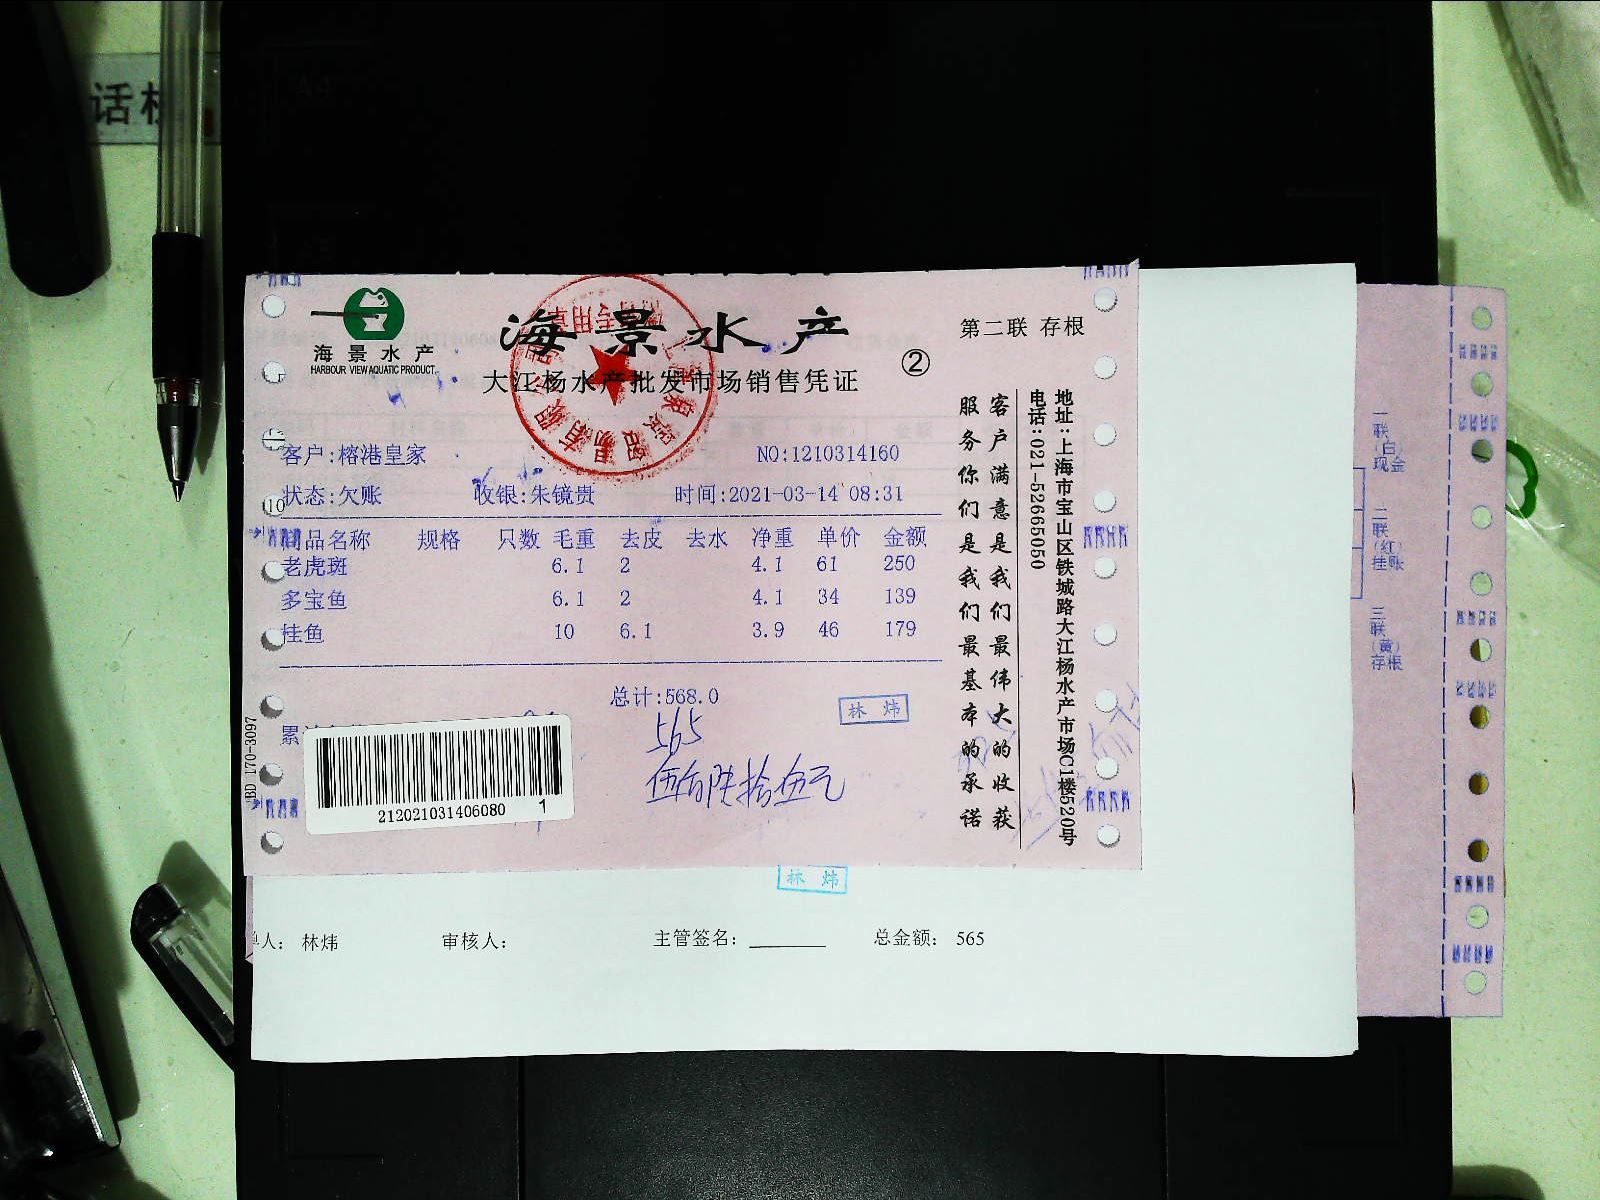 海景水产
HARBOUR VIEW AQUATIC PRODUCT.
海景水产
大江杨水产批发市场销售凭证
②
第二联 存根
客户:榕港皇家
NO:1210314160
状态:欠账
收银:朱镜贵
时间:2021-03-14 08:31
商品名称 规格 只数 毛重 去皮 去水 净重 单价 金额
老虎斑 6.1 2 4.1 61 250
多宝鱼 6.1 2 4.1 34 139
桂鱼 10 6.1 3.9 46 179
总计:568.0
565
伍佰陆拾伍元
林 炜
212021031406080 1
BD 170-3097
客户满意是我们最伟大的收获
服务你们是我们最基本的承诺
地址:上海市宝山区铁城路大江杨水产市场C1楼520号
电话:021-52665050
林 炜
单人: 林炜
审核人:
主管签名:
总金额: 565
一联(白)现金
二联(红)挂账
三联(黄)存根
话